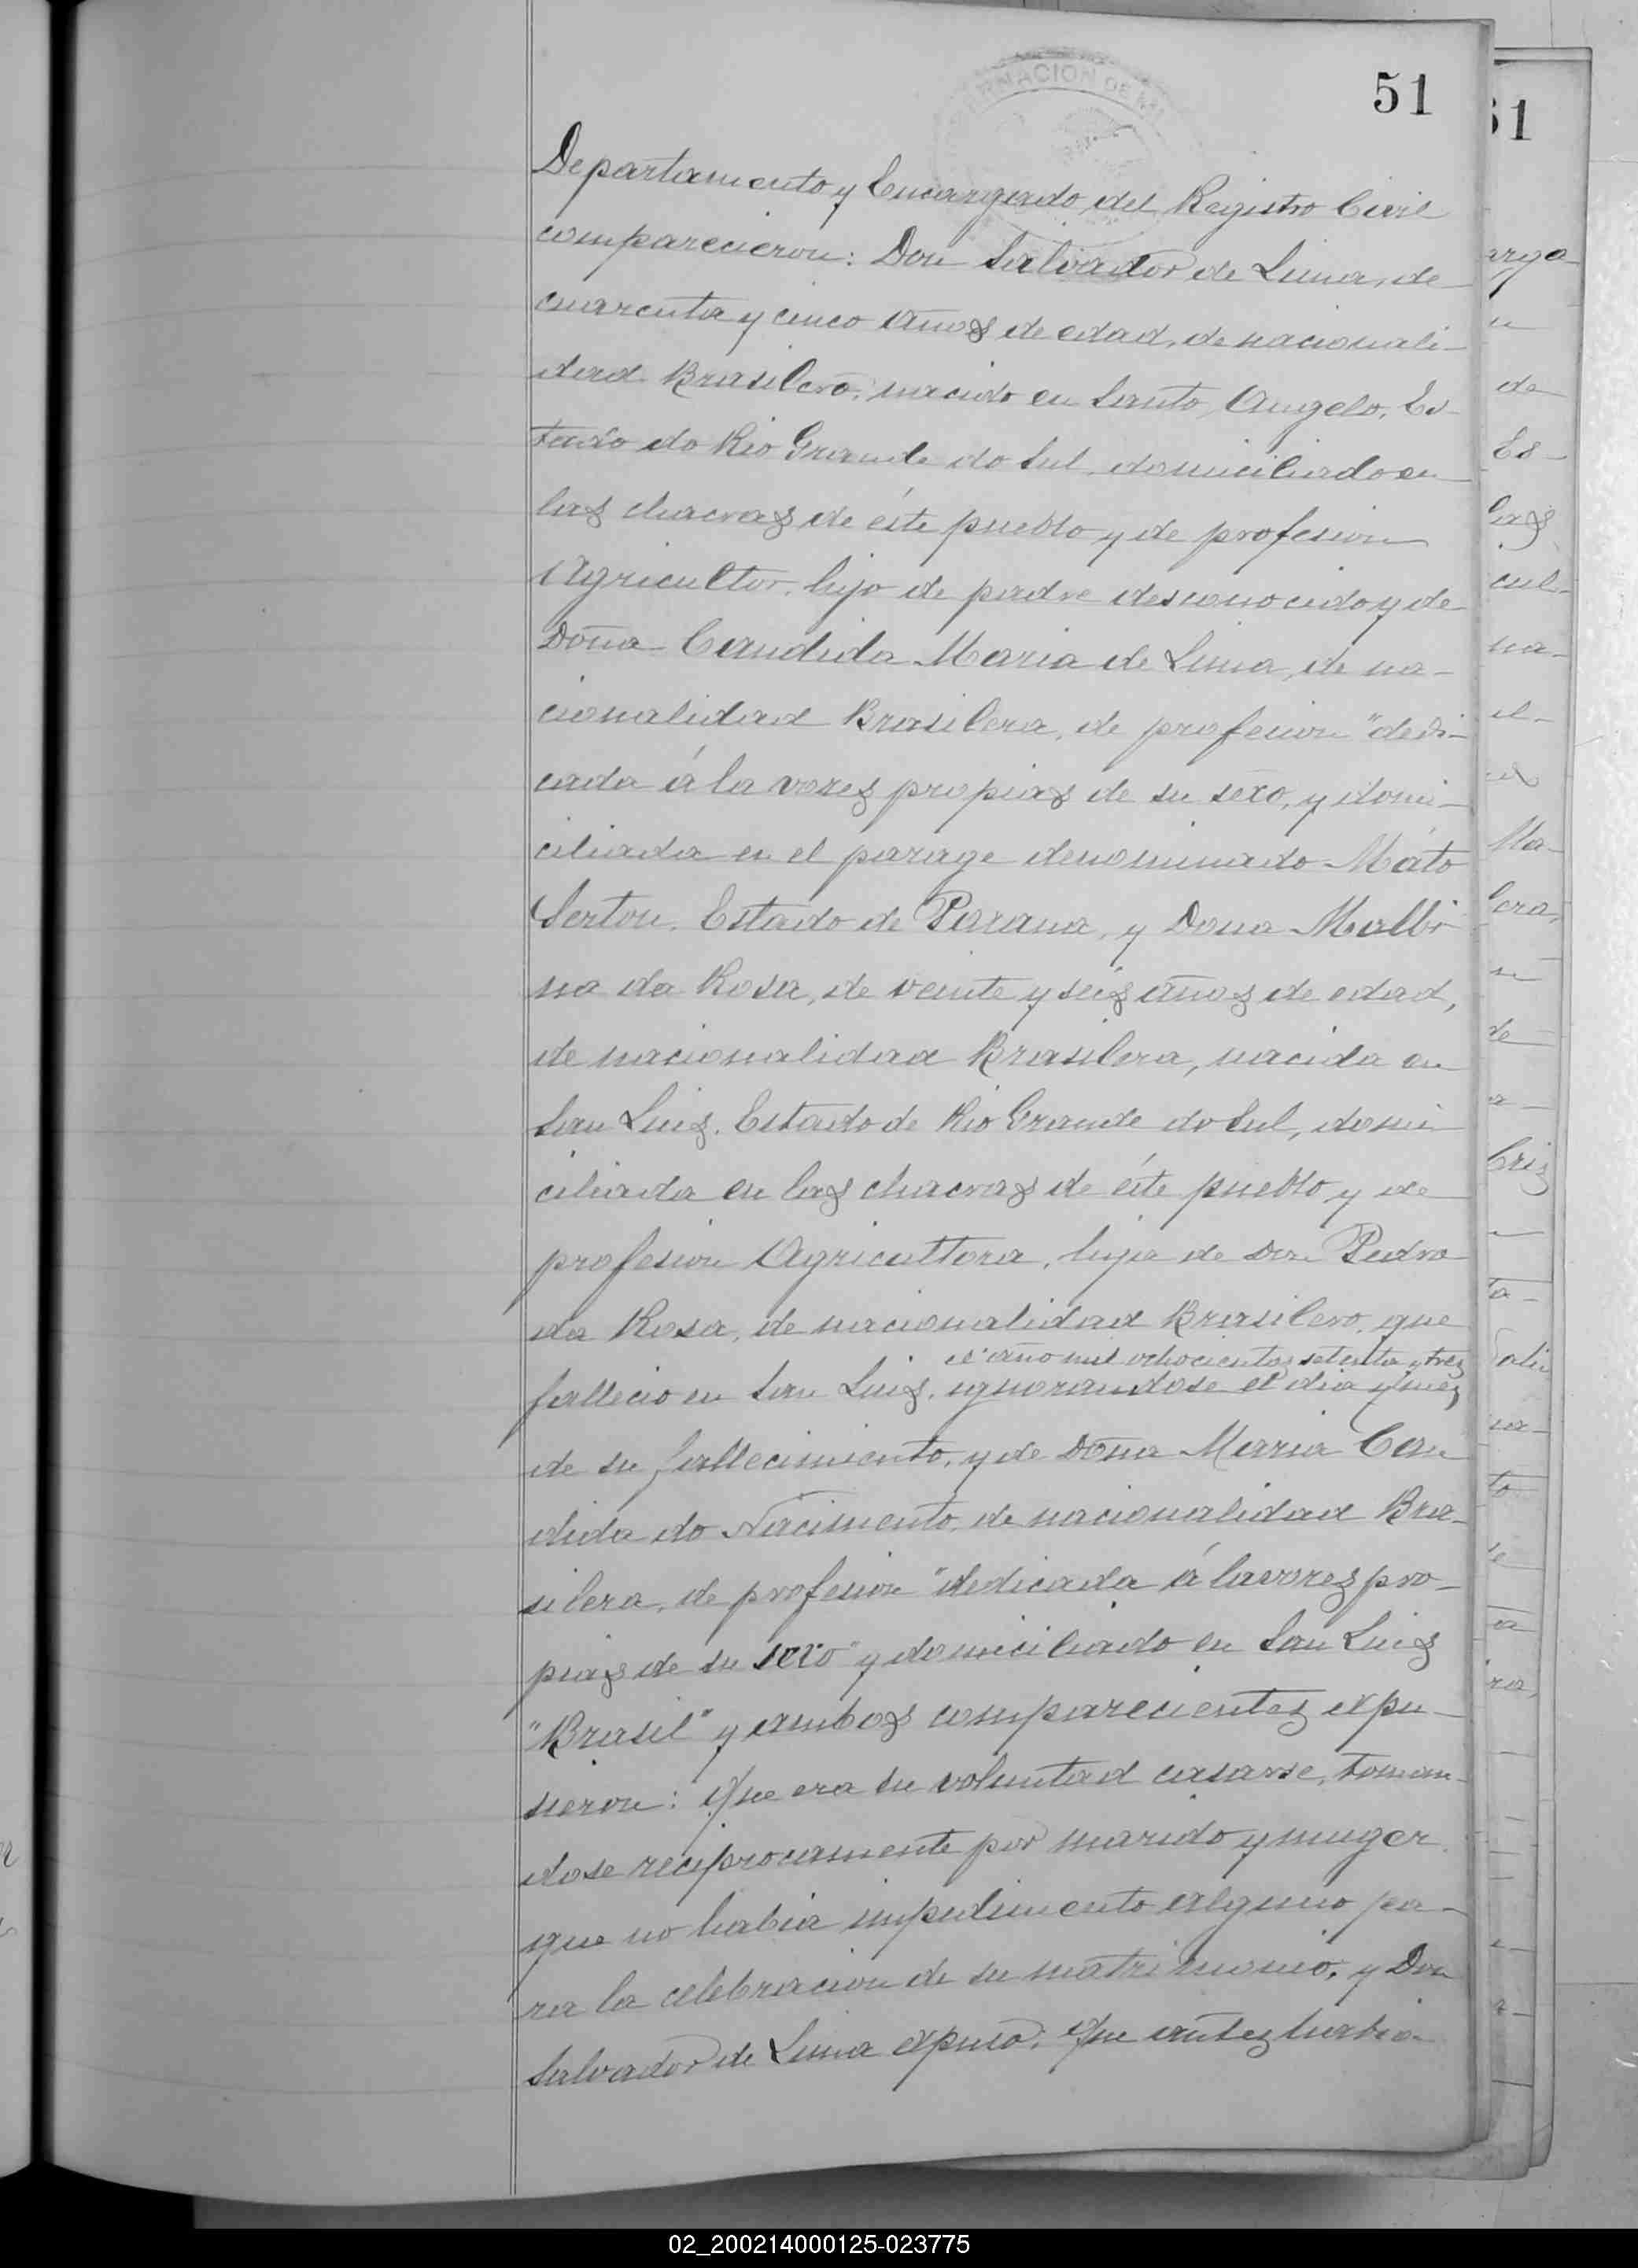 51
51
Departamento y Encargado del Registro Civil
comparecieron: Don Salvador de Lima, de
cuarenta y cinco años de edad, de nacionali-
dad Brasilero, nacido en Santo Angelo, Es-
tado do Rio Grande do Sul, domiciliado en
las chacras de éste pueblo y de profesion
Agricultor, hijo de padre desconocido y de
Doña Candida Maria de Lima, de na-
cionalidad Brasilera, de profesion "dedi-
cada á la vores propias de su sexo, y domi-
ciliada en el parage denominado Máto
Serton, Estado de Parana, y Dona Malbi-
na da Rosa, de veinte y seis años de edad,
de nacionalidad Brasilera, nacida en
San Luis, Estado de Rio Grande do Sul, domi
ciliada en las chacras de éste pueblo y de
profesion Agricultora, hija de Don Pedro
da Rosa, de nacionalidad Brasilero, que
el año mil ochocientos setenta y tres
fallecio en San Luis, ignorandose el dia y mes
de su fallecimiento, y de Doña Maria Can
dida do Nacimento, de nacionalidad Bra-
silera, de profesion "dedicada á lavores pro-
pias de su sexo" y domiciliado en San Luis
"Brasil" y ambos comparecientes expu-
sieron: Que era su voluntad casarse, toman-
dose reciprocamente por marido y muger
que no habia impedimento alguno pa-
ra la celebracion de su matrimonio, y Don
Salvador de Lima expuso: Que antes habia
02_200214000125-023775